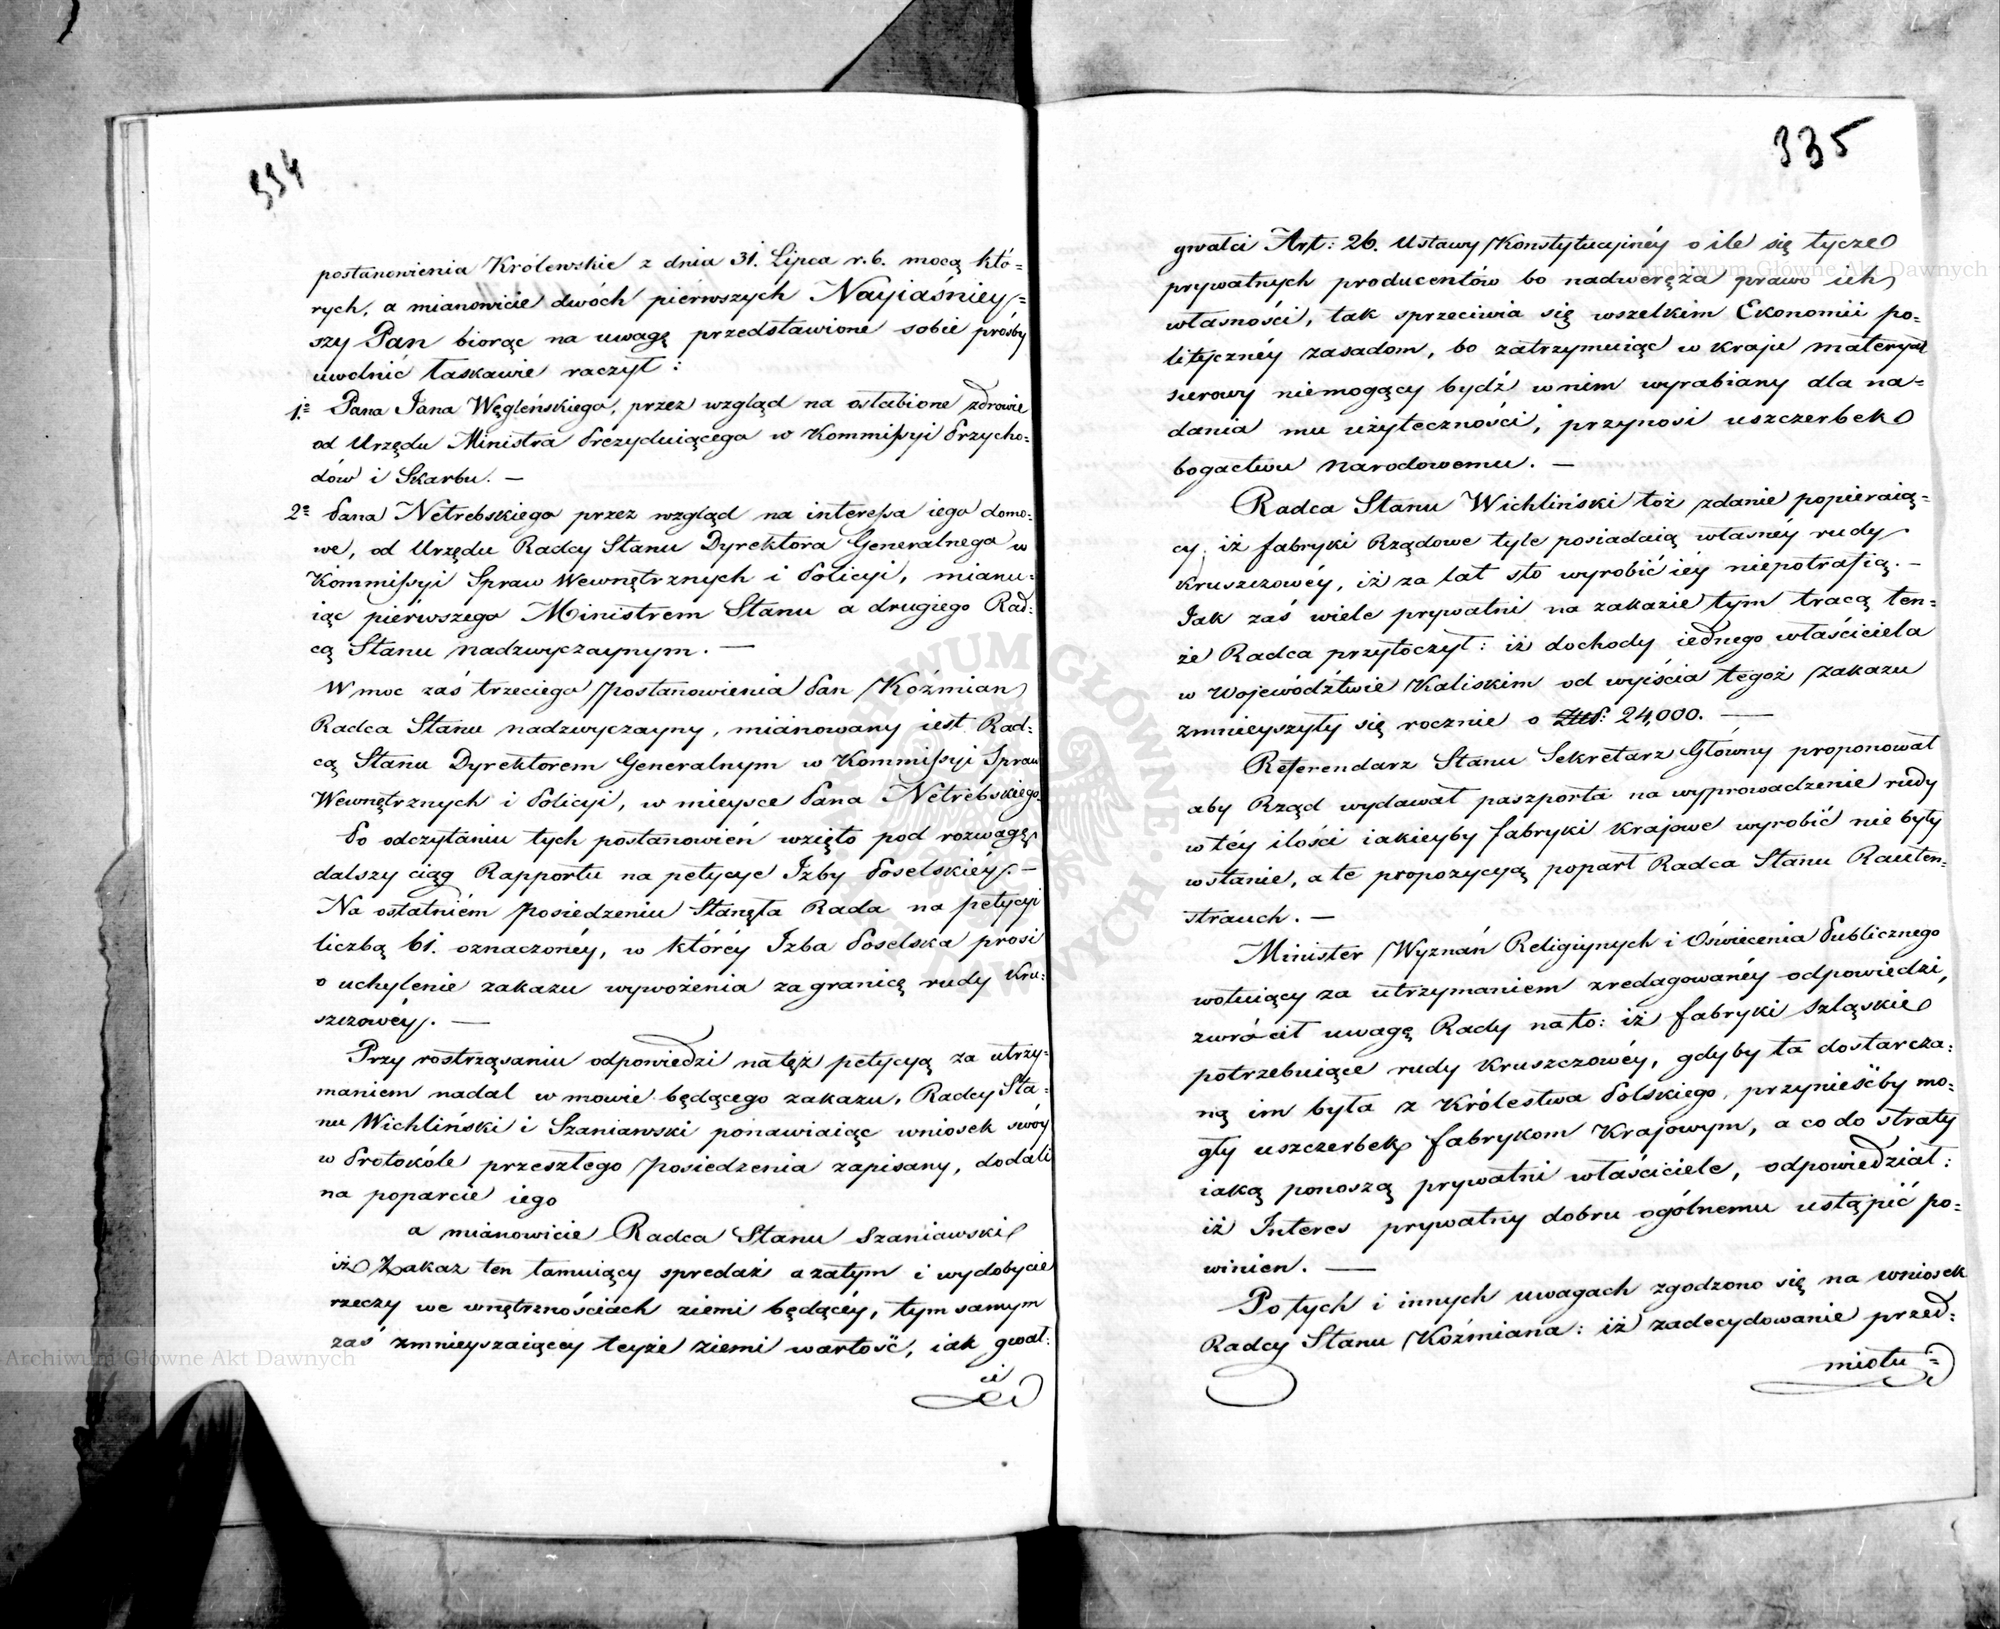 334
postanowienia Królewskie z dnia 31. Lipca r. b. mocą któ=
rych, a mianowicie dwóch pierwszych Nayiaśniey=
szy Pan biorąc na uwagę przedstawione sobie prośby
uwolnić łaskawie raczył:
1º Pana Jana Węgleńskiego, przez wzgląd na osłabione zdrowie
od Urzędu Ministra Prezyduiącego w Kommissyi Przycho=
dów i Skarbu. —
2º Pana Netrebskiego przez wzgląd na interessa iego domo=
we, od Urzędu Radcy Stanu Dyrektora Generalnego w
Kommissyi Spraw Wewnętrznych i Policyi, mianu=
iąc pierwszego Ministrem Stanu a drugiego Rad=
cą Stanu nadzwyczaynym. —
W moc zaś trzeciego postanowienia Pan Koźmian
Radca Stanu nadzwyczayny, mianowany iest Rad=
cą Stanu Dyrektorem Generalnym w Kommissyi Spraw
Wewnętrznych i Policyi, w mieysce Pana Netrebskiego.
Po odczytaniu tych postanowień wzięto pod rozwagę
dalszy ciąg Rapportu na petycye Izby Poselskiéy. —
Na ostatniém posiedzeniu Stanęła Rada na petycyi
liczbą 61. oznaczonéy, w któréy Izba Poselska prosi
o uchylenie zakazu wywożenia za granicę rudy kru=
szczowéy. —
Przy rostrząsaniu odpowiedzi na tęż petycyą za utrzy=
maniem nadal w mowie będącego zakazu, Radcy Sta=
nu Wichliński i Szaniawski ponawiaiąc wniosek swóy
w Protokóle przeszłego posiedzenia zapisany, dodali
na poparcie iego
a mianowicie Radca Stanu Szaniawski
iż Zakaz ten tamuiący spredaż a zatym i wydobycie
rzeczy we wnętrznościach ziemi będącéy, tym samym
zaś zmnieyszaiący teyże ziemi wartość, iak gwał=
ci
335
gwałci Art: 26. Ustawy Konstytucyinéy o ile się tycze
prywatnych producentów bo nadweręża prawo ich
własności, tak sprzeciwia się wszelkim Ekonomii po=
lityczney zasadom, bo zatrzymuiąc w kraju materyał
surowy niemogący bydź w nim wyrabiany dla na=
dania mu użyteczności, przynosi uszczerbek
bogactwu narodowemu. —
Radca Stanu Wichliński toż zdanie popieraią=
cy, iż fabryki Rządowe tyle posiadaią własnéy rudy
kruszczowéy, iż za lat sto wyrobić iéy niepotrafią. —
Jak zaś wiele prywatni na zakazie tym tracą ten=
że Radca przytoczył: iż dochody iednego właściciela
w Województwie Kaliskim od wyiścia tegoż zakazu
zmnieyszyły się rocznie o Złłp: 24,000. —
Referendarz Stanu Sekretarz Główny proponował
aby Rząd wydawał paszporta na wyprowadzenie rudy
w téy ilości iakieyby fabryki krajowe wyrobić nie były
w stanie, a te propozycyą poparł Radca Stanu Rauten=
strauch. —
Minister Wyznań Religiynych i Oświecenia Publicznego
wotuiący za utrzymaniem zredagowanéy odpowiedzi,
zwrócił uwagę Rady na to: iż fabryki Szląskie
potrzebuiące rudy kruszczowéy, gdyby ta dostarcza=
ną im była z Królestwa Polskiego, przynieśćby mo=
gły uszczerbek fabrykom krajowym, a co do straty
iaką ponoszą prywatni właściciele, odpowiedział:
iż Interes prywatny dobru ogólnemu ustąpić po=
winien. —
Po tych i innych uwagach zgodzono się na wniosek
Radcy Stanu Koźmiana: iż zadecydowanie przed=
miotu =
Archiwum Główne Akt Dawnych
Archiwum Główne Akt Dawnych
ARCHIWUM GŁÓWNE AKT DAWNYCH